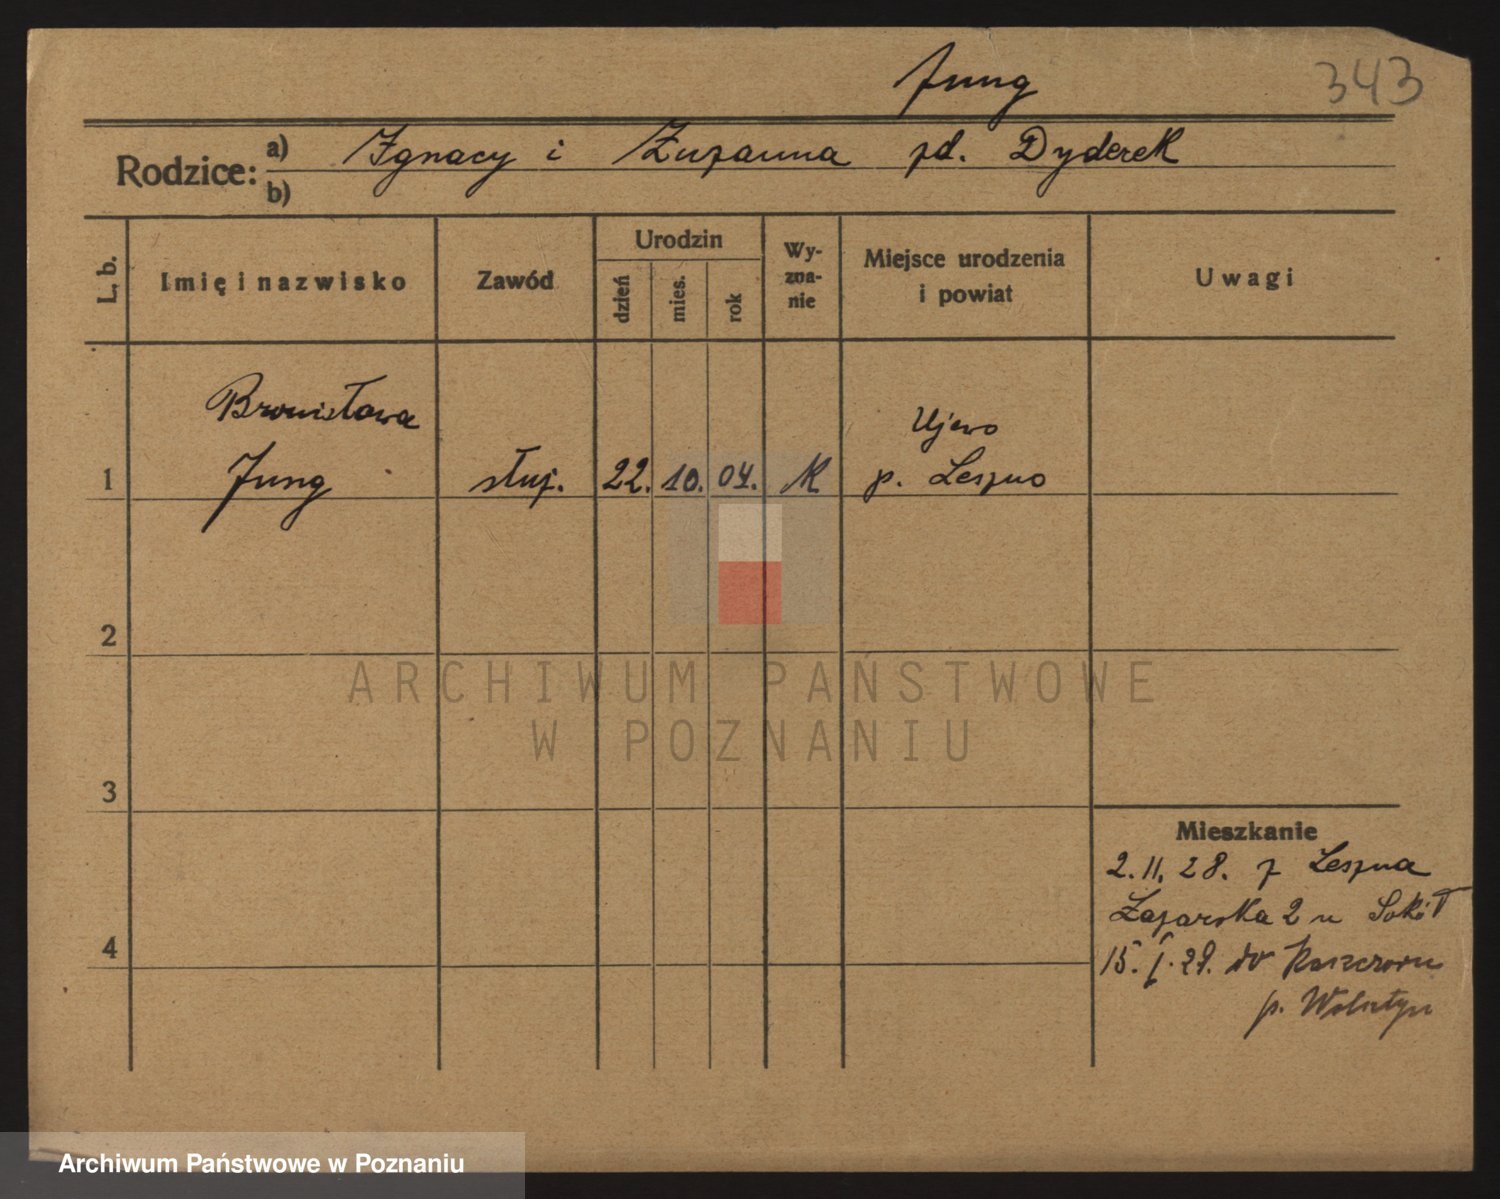 Jung
343
Rodzice:
a) Ignacy i Zuzanna zd. Dyderek
b)
L. b.
Imię i nazwisko
Zawód
Urodzin
dzień
mies.
rok
Wy-
zna-
nie
Miejsce urodzenia
i powiat
Uwagi
Bronisława
Ujewo
1 Jung służ. 22. 10. 04. K p. Leszno
2
ARCHIWUM PAŃSTWOWE
W POZNANIU
3
Mieszkanie
2. 11. 28. z Leszna
Łazarska 2 u Sokół
4
15. I. 29. do
p. Wolsztyn
Archiwum Państwowe w Poznaniu